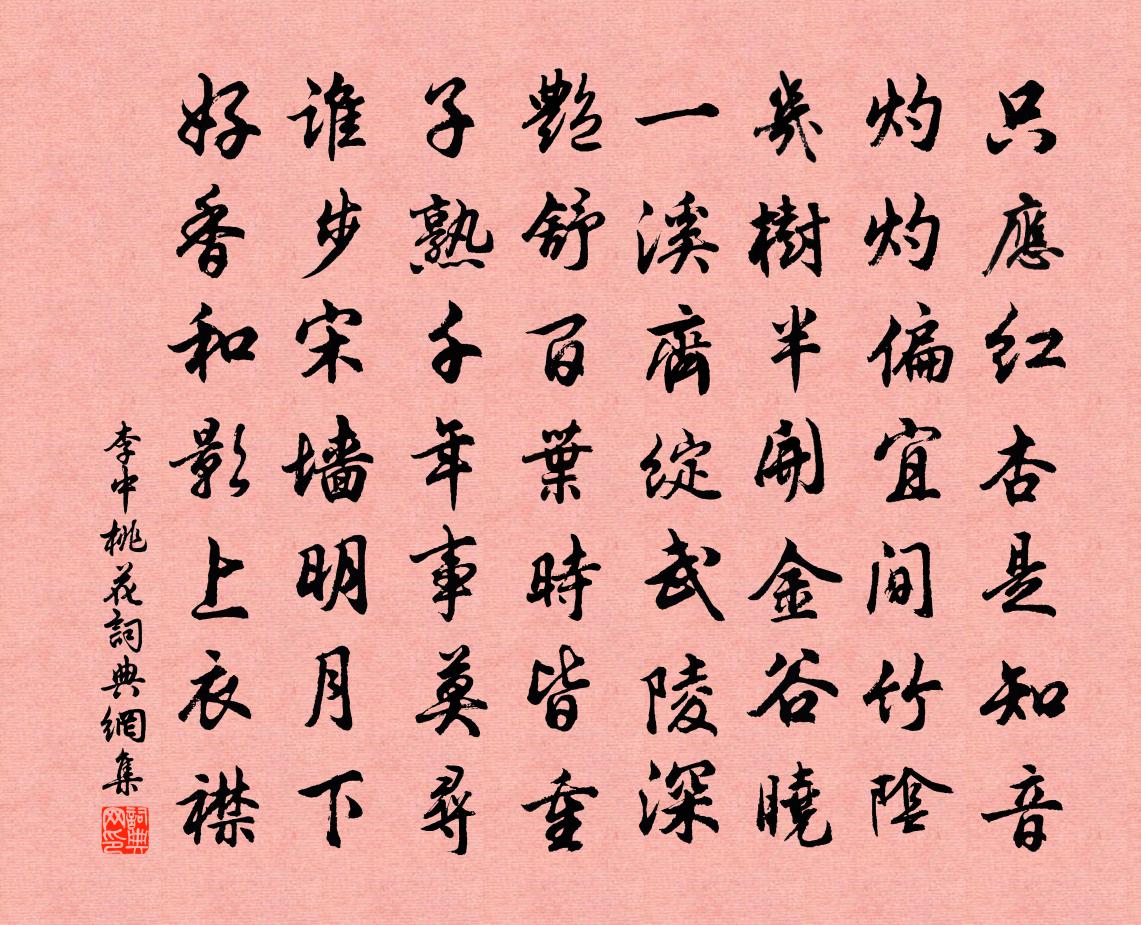 只應红杏是知音
灼灼偏宜间竹陰
幾樹半開金谷曉
一溪齊綻武陵深
艷舒百葉時皆重
子熟千年事莫尋
谁步宋墙明月下
好香和影上衣襟
李中桃花詞典網集
詞典网印